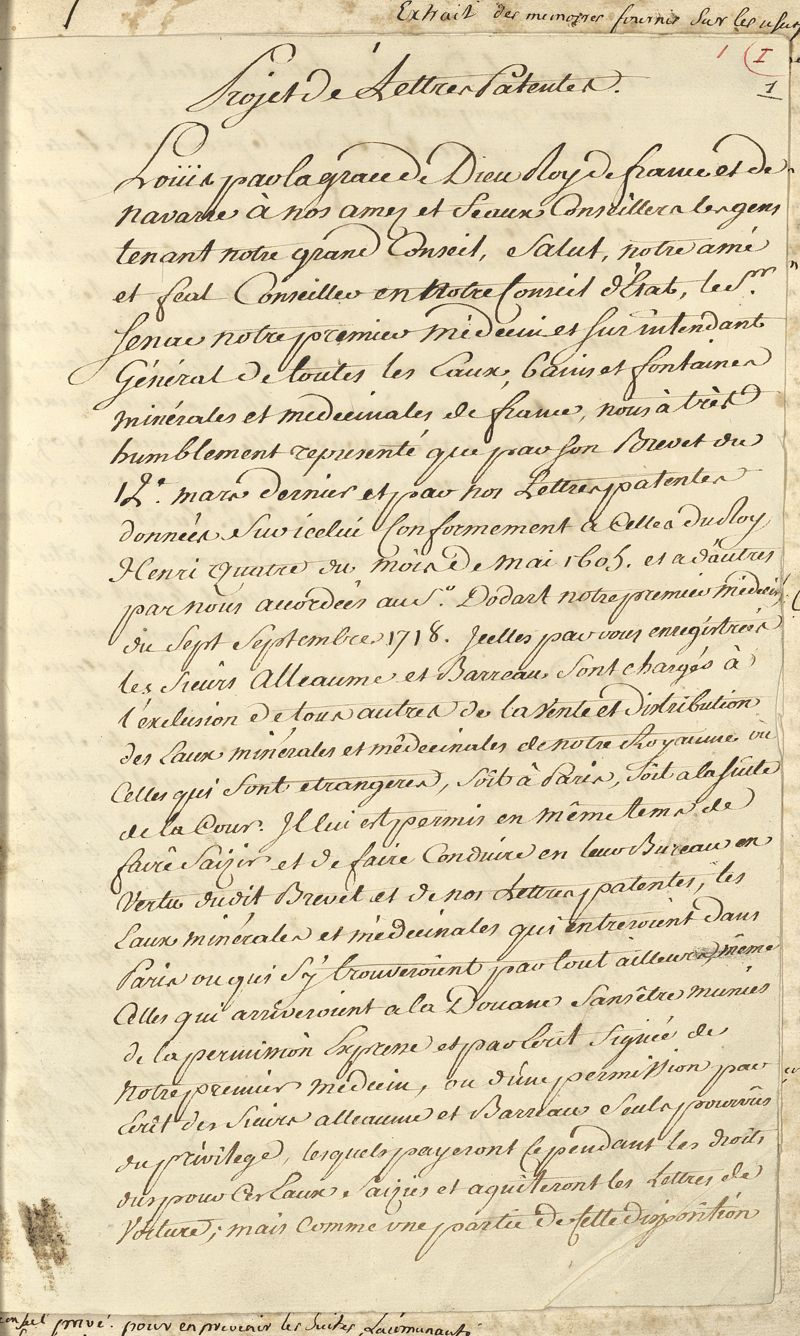 Extrait des memoires fournis sur les
1 I
1
Projet de Lettres Patentes.
Loüis par la grace de Dieu Roy de france et de
navarre à nos amez et feaux Conseillers les gens
tenant notre grand Conseil, Salut, notre amé
et feal Conseiller en Notre Conseil d'Etat, le Sr.
Senac notre premier médecin et surintendant
Général de toutes les Eaux, bains et fontaines
minérales et medecinales de france, nous à très
humblement representé que par son Brevet du
12. mars dernier et par nos Lettres patentes
données sur icelui Conformement à Celles du Roy
Henri Quatre du mois de mai 1605. et a d'autres
par nous accordées au Sr. Dodart notre premier médecin
du Sept Septembre 1718. Icelles par vous enregistrées
les Sieurs Alleaume et Barreau sont chargés à
l'exclusion de tous autres de la vente et distribution
des Eaux minérales et médecinales de notre Royaume où
Celles qui sont etrangeres, soit à Paris, soit a la suite
de la Cour. Il lui est permis en même tems de
faire Saizir et de faire Conduire en leur Bureau en
Vertu dudit Brevet et de nos Lettres patentes, les
Eaux minérales et médecinales qui entreroient dans
Paris ou qui s'y trouveroient par tout ailleurs, même
Celles qui arriveroient a la Douane Sans être munies
de la permission Expresse et par Ecrit Signée de
Notre premier médecin, ou d'une permission par
Ecrit des Sieurs alleaume et Barreau Seuls pourvûs
du privilege, lesquels payeront Cependant les droits
dus pour Ces Eaux Saizies et aquiteront les Lettres de
Voiture; mais comme une partie de Cette disposition
privé. pour en prevenir les suites,